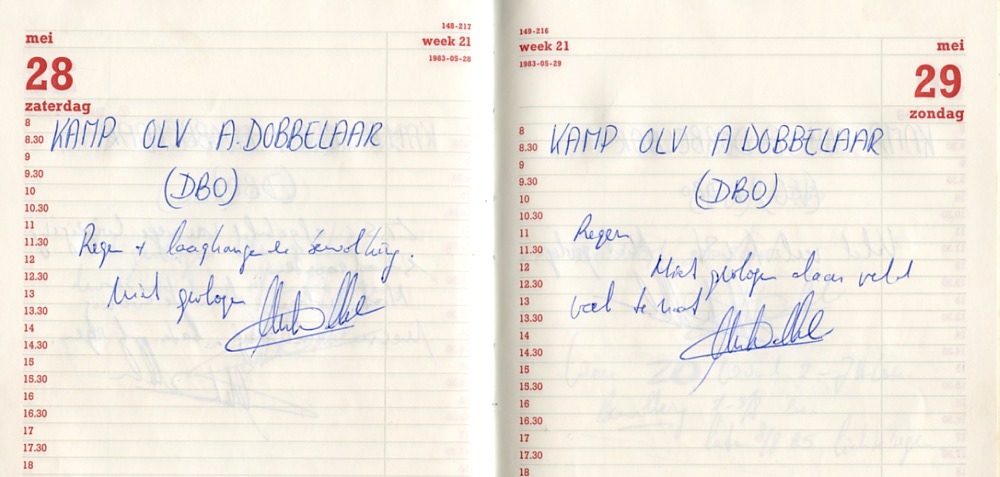 mei
148-217
week 21
1983-05-28
28
zaterdag
8
8.30
KAMP OLV A.DOBBELAAR
9
9.30
10
(DBO)
10.30
11
11.30
Regen + laaghangende bewolking.
12
12.30
13
Niet gevlogen
13.30
14
14.30
15
15.30
16
16.30
17
17.30
18
149-216
week 21
1983-05-29
mei
29
zondag
8
8.30
KAMP OLV A DOBBELAAR
9
9.30
10
(DBO)
10.30
11
Regen
11.30
12
Niet gevlogen daar veld
12.30
13
veel te nat
13.30
14
14.30
15
15.30
16
16.30
17
17.30
18